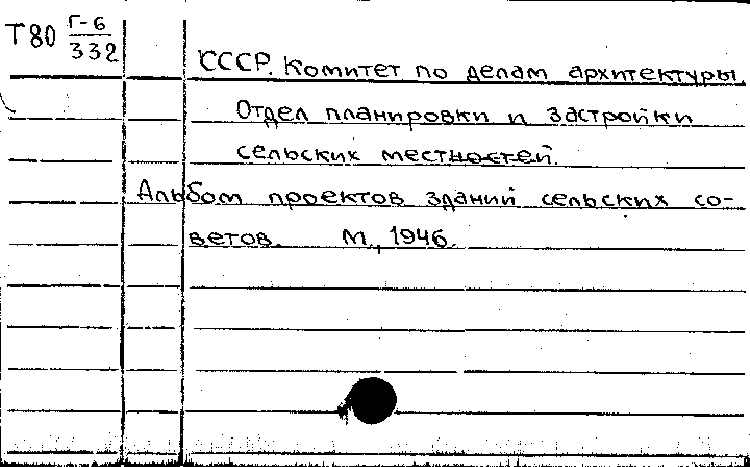 Т80 Г-6
332
СССР. Комитет по делам архитектуры.
Отдел планировки и застройки
сельских местностей.
Альбом проектов зданий сельских со-
ветов. М., 1946.